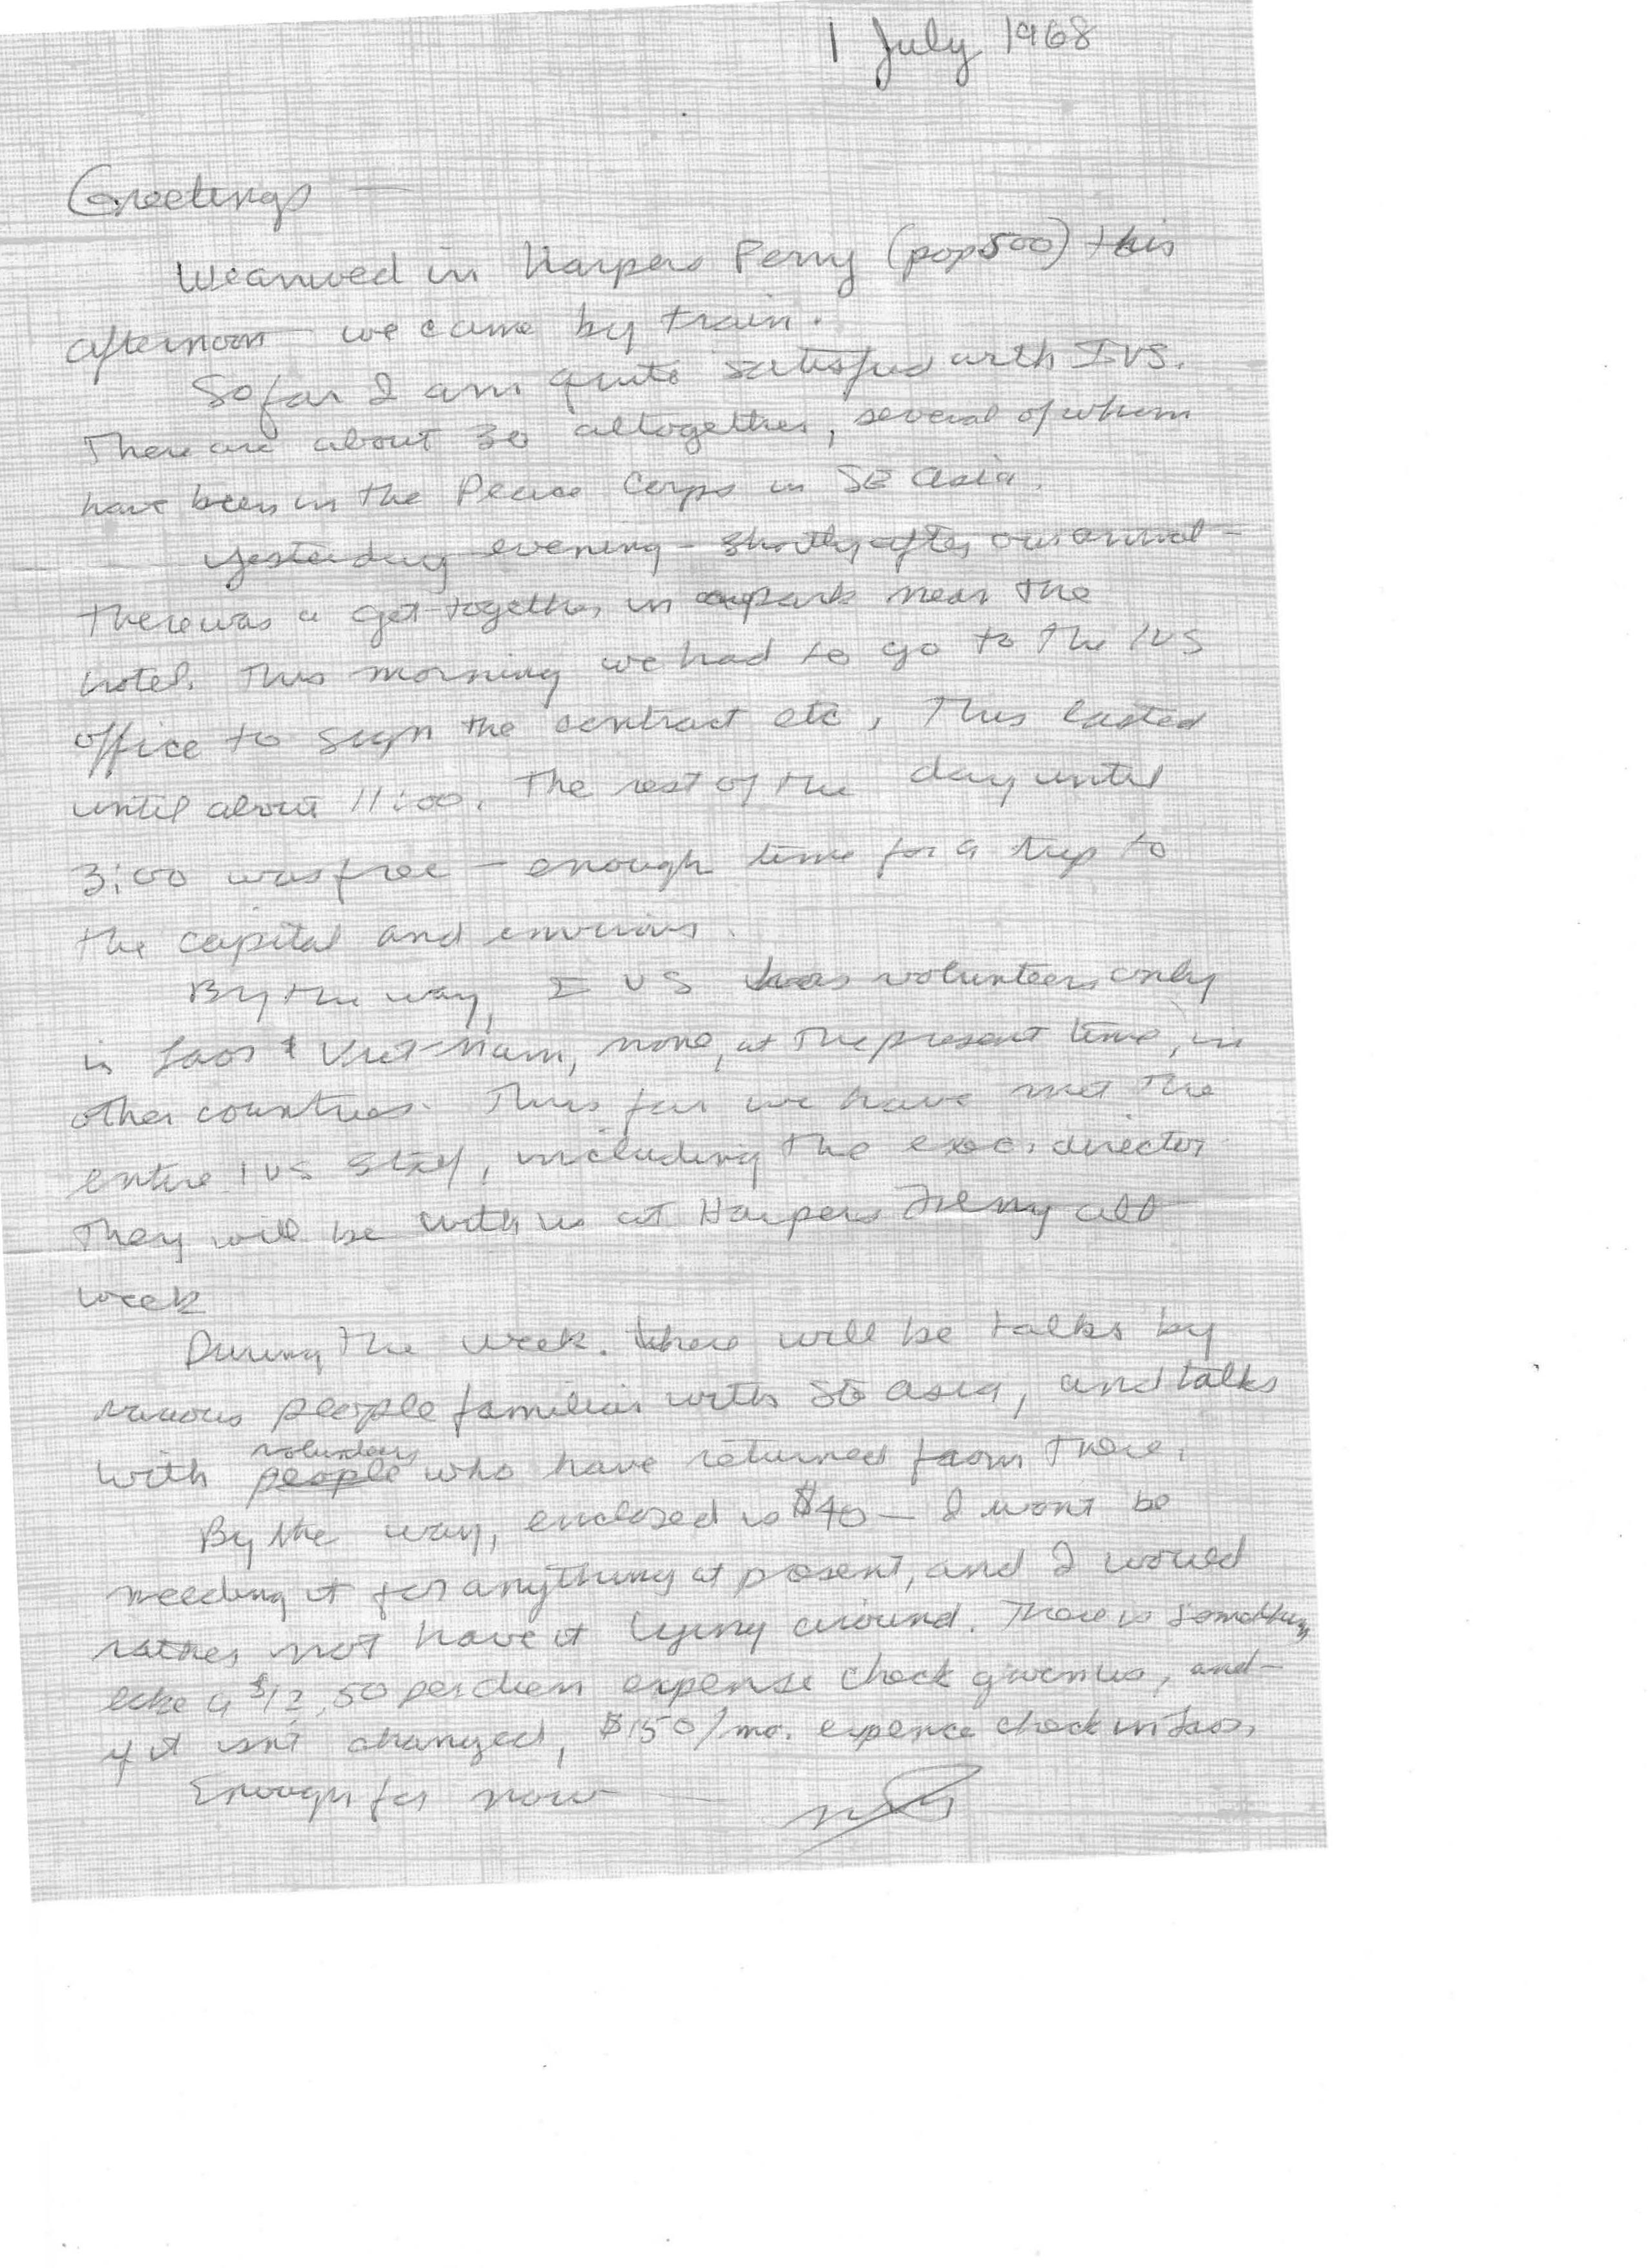 1 July 1968
Greetings —
We arrived in Harpers Ferry (pop 500) this
afternoon — we came by train.
So far I am quite satisfied with IVS.
There are about 30 altogether, several of whom
have been in the Peace Corps in SE Asia.
Yesterday evening – shortly after our arrival –
there was a get-together in a park near the
hotel. This morning we had to go to the IVS
office to sign the contract etc, This lasted
until about 11:00. The rest of the day until
3:00 was free – enough time for a trip to
the capital and environs.
By the way, IVS has volunteers only
in Laos & Viet-Nam, none, at the present time, in
other countries. Thus far we have met the
entire IVS staff, including the exec. director
They will be with us at Harpers Ferry all
week
During the week. there will be talks by
various people familiar with SE Asia, and talks
volunteers
with people who have returned from there.
By the way, enclosed is $40 – I wont be
needing it for anything at present, and I would
rather not have it lying around. There is something
like a $12.50 per diem expense check given us, and –
if it isn't changed, $150/mo. expense check in Laos.
Enough for now —